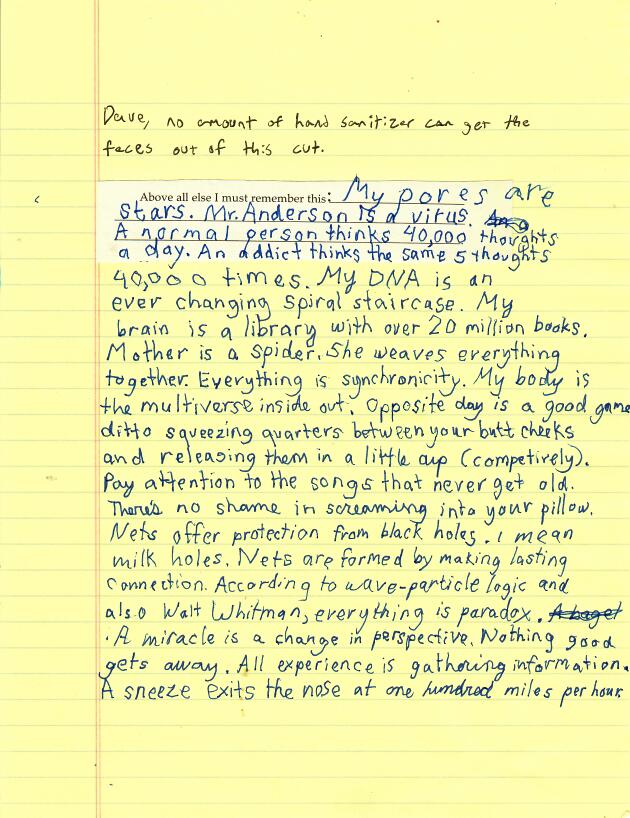 Dave, no amount of hand sanitizer can get the
faces out of this cut.
Above all else I must remember this: My pores are
stars. Mr. Anderson is a virus.
A normal person thinks 40,000 thoughts
a day. An addict thinks the same 5 thoughts
40,000 times. My DNA is an
ever changing spiral staircase. My
brain is a library with over 20 million books.
Mother is a spider. She weaves everything
together. Everything is synchronicity. My body is
the multiverse inside out. Opposite day is a good game
ditto squeezing quarters between your butt cheeks
and releasing them in a little cup (competively).
Pay attention to the songs that never get old.
There's no shame in screaming into your pillow.
Nets offer protection from black holes. I mean
milk holes. Nets are formed by making lasting
connection. According to wave-particle logic and
also Walt Whitman, everything is paradox.
. A miracle is a change in perspective. Nothing good
gets away. All experience is gathering information.
A sneeze exits the nose at one hundred miles per hour.